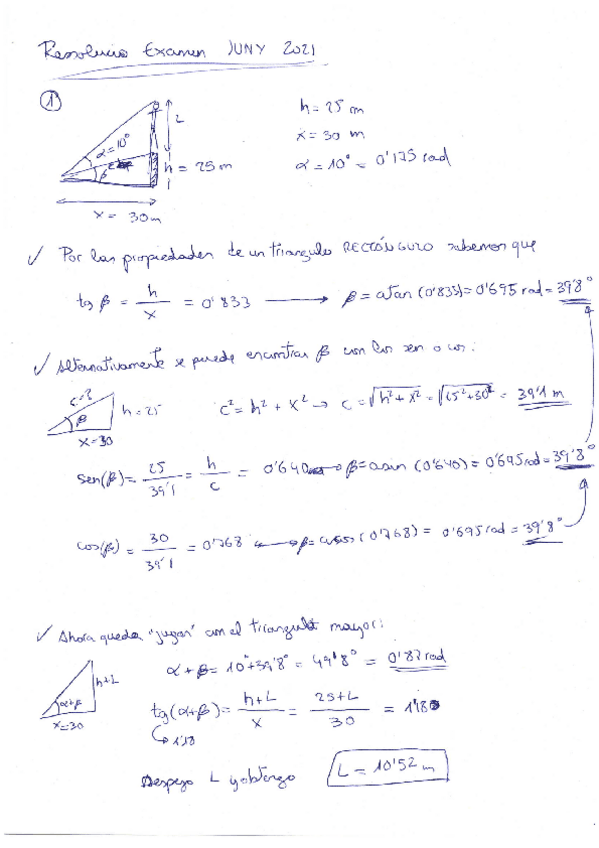 Resolucio Examen JUNY 2021
①
L
α=10°
β
h = 25 m
x = 30m
h = 25 m
x = 30 m
α = 10° = 0'175 rad
✓ Por las propiedades de un triangulo RECTÁNGULO sabemos que
tg β = h/x = 0'833 → β = atan (0'833) = 0'695 rad = 39'8°
✓ Alternativamente se puede encontrar β con los sen o cos:
c=?
β
h = 25
x=30
c² = h² + x² → c = √h² + x² = √25² + 30² = 39'1 m
sen(β) = 25/39'1 = h/c = 0'640 → β = asin (0'640) = 0'695 rad = 39'8°
cos(β) = 30/39'1 = 0'768 → β = acos (0'768) = 0'695 rad = 39'8°
✓ Ahora queda "jugar" con el triangulo mayor:
h+L
α+β
x=30
α + β = 10° + 39'8° = 49'8° = 0'87 rad
tg(α+β) = h+L/x = 25+L/30 = 1'18
↳ 1'18
Despejo L y obtengo L = 10'52 m